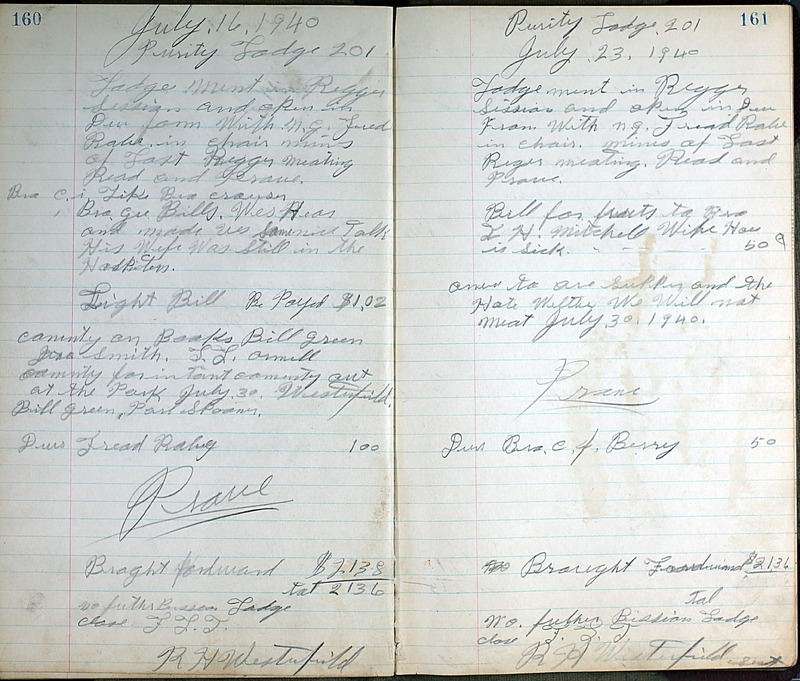 160
July, 16, 1940
Purity Lodge 201
Lodge ment in Regger
Session and open in
Duu form With N.G. Fread
Rabe in chair mins
of Last Regger meating
Read and Prove.
Bro C. i Like Bro
Bro Gee Bills. Wes Heas
and made us Talk
His Wife Was Still in the
Light Bill Be Payed $1,02
camnty on Books Bill Green
Smith. T. L.
camnty for in tant camnty out
at the Park July 30. Westerfield.
Bill Green, Parl Spooner.
Dues Fread Rabe 1 00
Prove
Braght fordward $2138
tat 2136
no futhr Bissian Lodge
close F. L. T.
R H Westerfield
161
Purity Lodge 201
July 23, 1940
Lodge ment in Regger
Session and open in Duu
From With ng. Fread Rabe
in chair. mins of Last
Reger meating. Read and
Prove.
Bill for fruits to Bro
L H. Mitchell Wife Hoe
is sick. 50
to are supper and the
Hate We Will not
meat July 30. 1940.
Prove
Dues Bro. C. J. Berry 50
Braught Foordward $2136
Tal
No. futher Bission Lodge
close F. L. T.
R H Westerfield